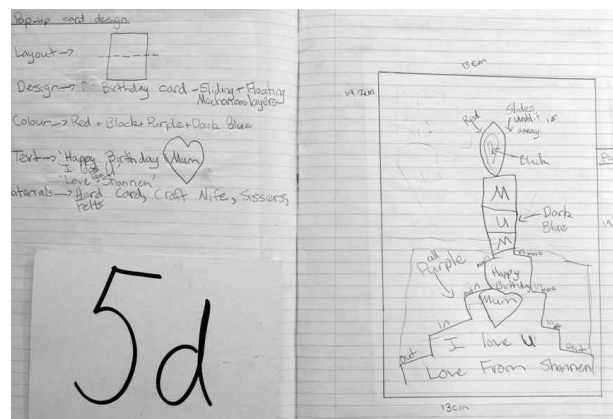 Pop-up card design
Layout →
Design → Birthday card - Sliding + Floating
Mechanism layers
Colour → Red + Black + Purple + Dark Blue
Text → 'Happy Birthday Mum
I love U
'Love Shannen'
aterials → Hard Card, Craft Nife, Sissers,
Felts
5d
13cm
19.2cm
Red
Slides
until it is
away.
Black
M
U
M
Dark
Blue
all
Purple
Happy
Birthday
Mum
in
in
out
out
I love U
Love From Shannen
13cm